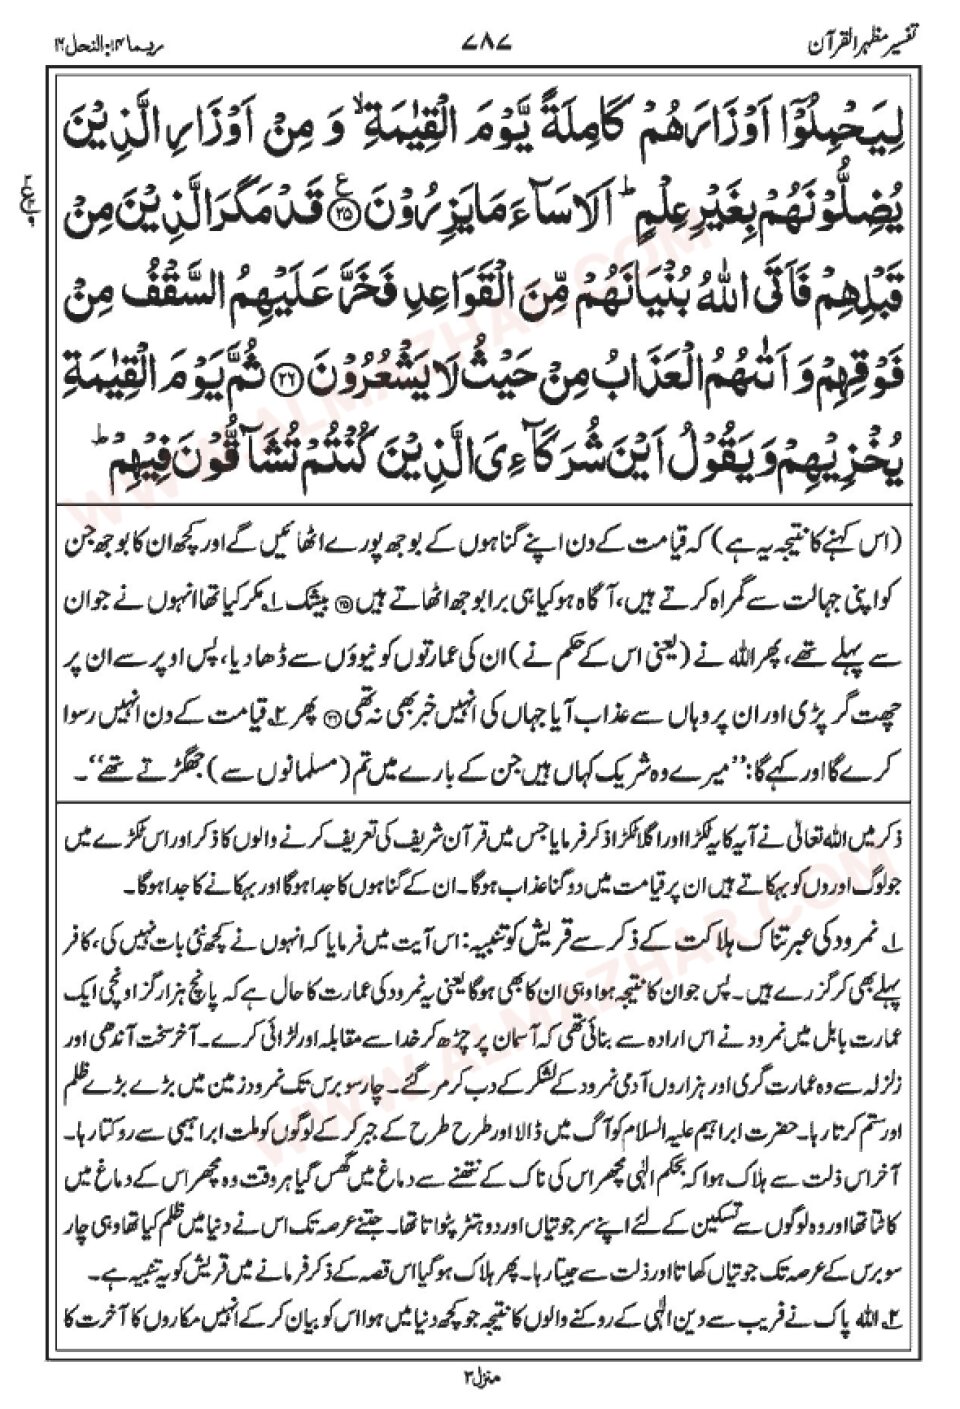 تفسیر مظہر القرآن ۷۸۷ ربما ۱۴: النحل ۱۶
لِيَحْمِلُوْٓا اَوْزَارَهُمْ كَامِلَةً يَّوْمَ الْقِيٰمَةِ ۙ وَ مِنْ اَوْزَارِ الَّذِيْنَ
يُضِلُّوْنَهُمْ بِغَيْرِ عِلْمٍ ؕ اَلَا سَآءَ مَا يَزِرُوْنَ ﴿۲۵﴾ ع قَدْ مَكَرَ الَّذِيْنَ مِنْ
قَبْلِهِمْ فَاَتَى اللّٰهُ بُنْيَانَهُمْ مِّنَ الْقَوَاعِدِ فَخَرَّ عَلَيْهِمُ السَّقْفُ مِنْ
فَوْقِهِمْ وَ اَتٰىهُمُ الْعَذَابُ مِنْ حَيْثُ لَا يَشْعُرُوْنَ ﴿۲۶﴾ ثُمَّ يَوْمَ الْقِيٰمَةِ
يُخْزِيْهِمْ وَ يَقُوْلُ اَيْنَ شُرَكَآءِيَ الَّذِيْنَ كُنْتُمْ تُشَآقُّوْنَ فِيْهِمْ ؕ
(اس کہنے کا نتیجہ یہ ہے) کہ قیامت کے دن اپنے گناہوں کے بوجھ پورے اٹھائیں گے اور کچھ ان کا بوجھ جن
کو اپنی جہالت سے گمراہ کرتے ہیں، آگاہ ہو کیا ہی برا بوجھ اٹھاتے ہیں ﴿۲۵﴾ بیشک ۱؎ مکر کیا تھا انہوں نے جو ان
سے پہلے تھے، پھر اللہ نے (یعنی اس کے حکم نے) ان کی عمارتوں کو نیوؤں سے ڈھا دیا، پس اوپر سے ان پر
چھت گر پڑی اور ان پر وہاں سے عذاب آیا جہاں کی انہیں خبر بھی نہ تھی ﴿۲۶﴾ پھر ۲؎ قیامت کے دن انہیں رسوا
کرے گا اور کہے گا: ’’میرے وہ شریک کہاں ہیں جن کے بارے میں تم (مسلمانوں سے) جھگڑتے تھے‘‘۔
ذکر میں اللہ تعالیٰ نے آیہ کا یہ ٹکڑا اور اگلا ٹکڑا ذکر فرمایا جس میں قرآن شریف کی تعریف کرنے والوں کا ذکر اور اس ٹکڑے میں
جو لوگ اوروں کو بہکاتے ہیں ان پر قیامت میں دو گنا عذاب ہوگا۔ ان کے گناہوں کا جدا ہوگا اور بہکانے کا جدا ہوگا۔
۱؎ نمرود کی عبرتناک ہلاکت کے ذکر سے قریش کو تنبیہ: اس آیت میں فرمایا کہ انہوں نے کچھ نئی بات نہیں کی، کافر
پہلے بھی کر گزرے ہیں۔ پس جو ان کا نتیجہ ہوا وہی ان کا بھی ہوگا یعنی یہ نمرود کی عمارت کا حال ہے کہ پانچ ہزار گز اونچی ایک
عمارت بابل میں نمرود نے اس ارادہ سے بنائی تھی کہ آسمان پر چڑھ کر خدا سے مقابلہ اور لڑائی کرے۔ آخر سخت آندھی اور
زلزلہ سے وہ عمارت گری اور ہزاروں آدمی نمرود کے لشکر کے دب کر مر گئے۔ چار سو برس تک نمرود زمین میں بڑے بڑے ظلم
اور ستم کرتا رہا۔ حضرت ابراہیم علیہ السلام کو آگ میں ڈالا اور طرح طرح کے جبر کر کے لوگوں کو ملت ابراہیمی سے روکتا رہا۔
آخر اس ذلت سے ہلاک ہوا کہ بحکم الٰہی مچھر اس کی ناک کے نتھنے سے دماغ میں گھس گیا ہر وقت وہ مچھر اس کے دماغ میں
کاٹتا تھا اور وہ لوگوں سے تسکین کے لئے اپنے سر جوتیاں اور دو ہتڑ پٹواتا تھا۔ جتنے عرصہ تک اس نے دنیا میں ظلم کیا تھا وہی چار
سو برس کے عرصہ تک جوتیاں کھاتا اور ذلت سے جیتا رہا۔ پھر ہلاک ہو گیا اس قصہ کے ذکر فرمانے میں قریش کو یہ تنبیہ ہے۔
۲؎ اللہ پاک نے فریب سے دین الٰہی کے روکنے والوں کا نتیجہ جو کچھ دنیا میں ہوا اس کو بیان کر کے انہیں مکاروں کا آخرت کا
منزل ۳
WWW.ALMAZHAR.COM
WWW.ALMAZHAR.COM